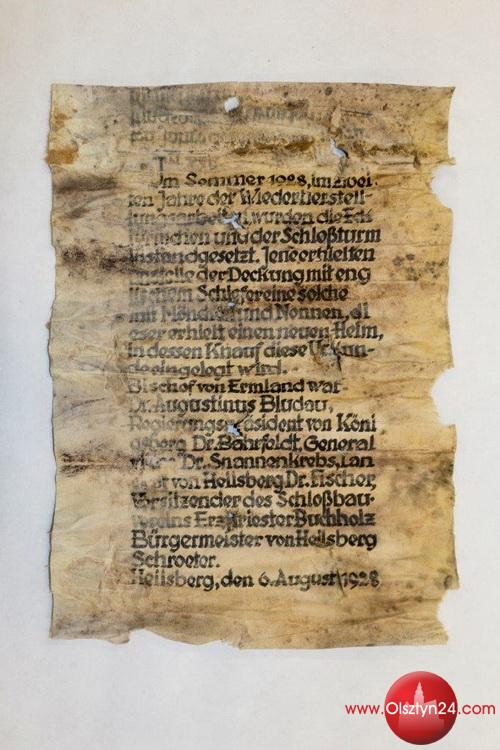 Im Sommer 1928, im zwei-
ten Jahre der Wiederherstell-
ungsarbeiten, wurden die Eck
türmchen und der Schloßturm
instandgesetzt. Jene erhielten
anstelle der Deckung mit eng
lischem Schiefer eine solche
mit Mönchen und Nonnen, di
eser erhielt einen neuen Helm,
in dessen Knauf diese Urkun-
de eingelegt wird.
Bischof von Ermland war
Dr. Augustinus Bludau,
Regierungspräsident von Köni
gsberg Dr. Bahrfeldt, General
Dr. Snannenkrebs, Lan
drat von Heilsberg Dr. Fischer,
Vorsitzender des Schloßbau-
vereins Erzpriester Buchholz
Bürgermeister von Heilsberg
Schroeter.
Heilsberg, den 6. August 1928
www.Olsztyn24.com